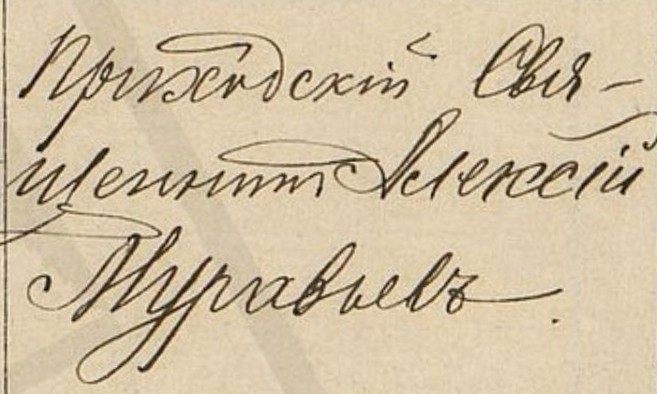 Приходскій Свя-
щенникъ Алексій
Муравьевъ.